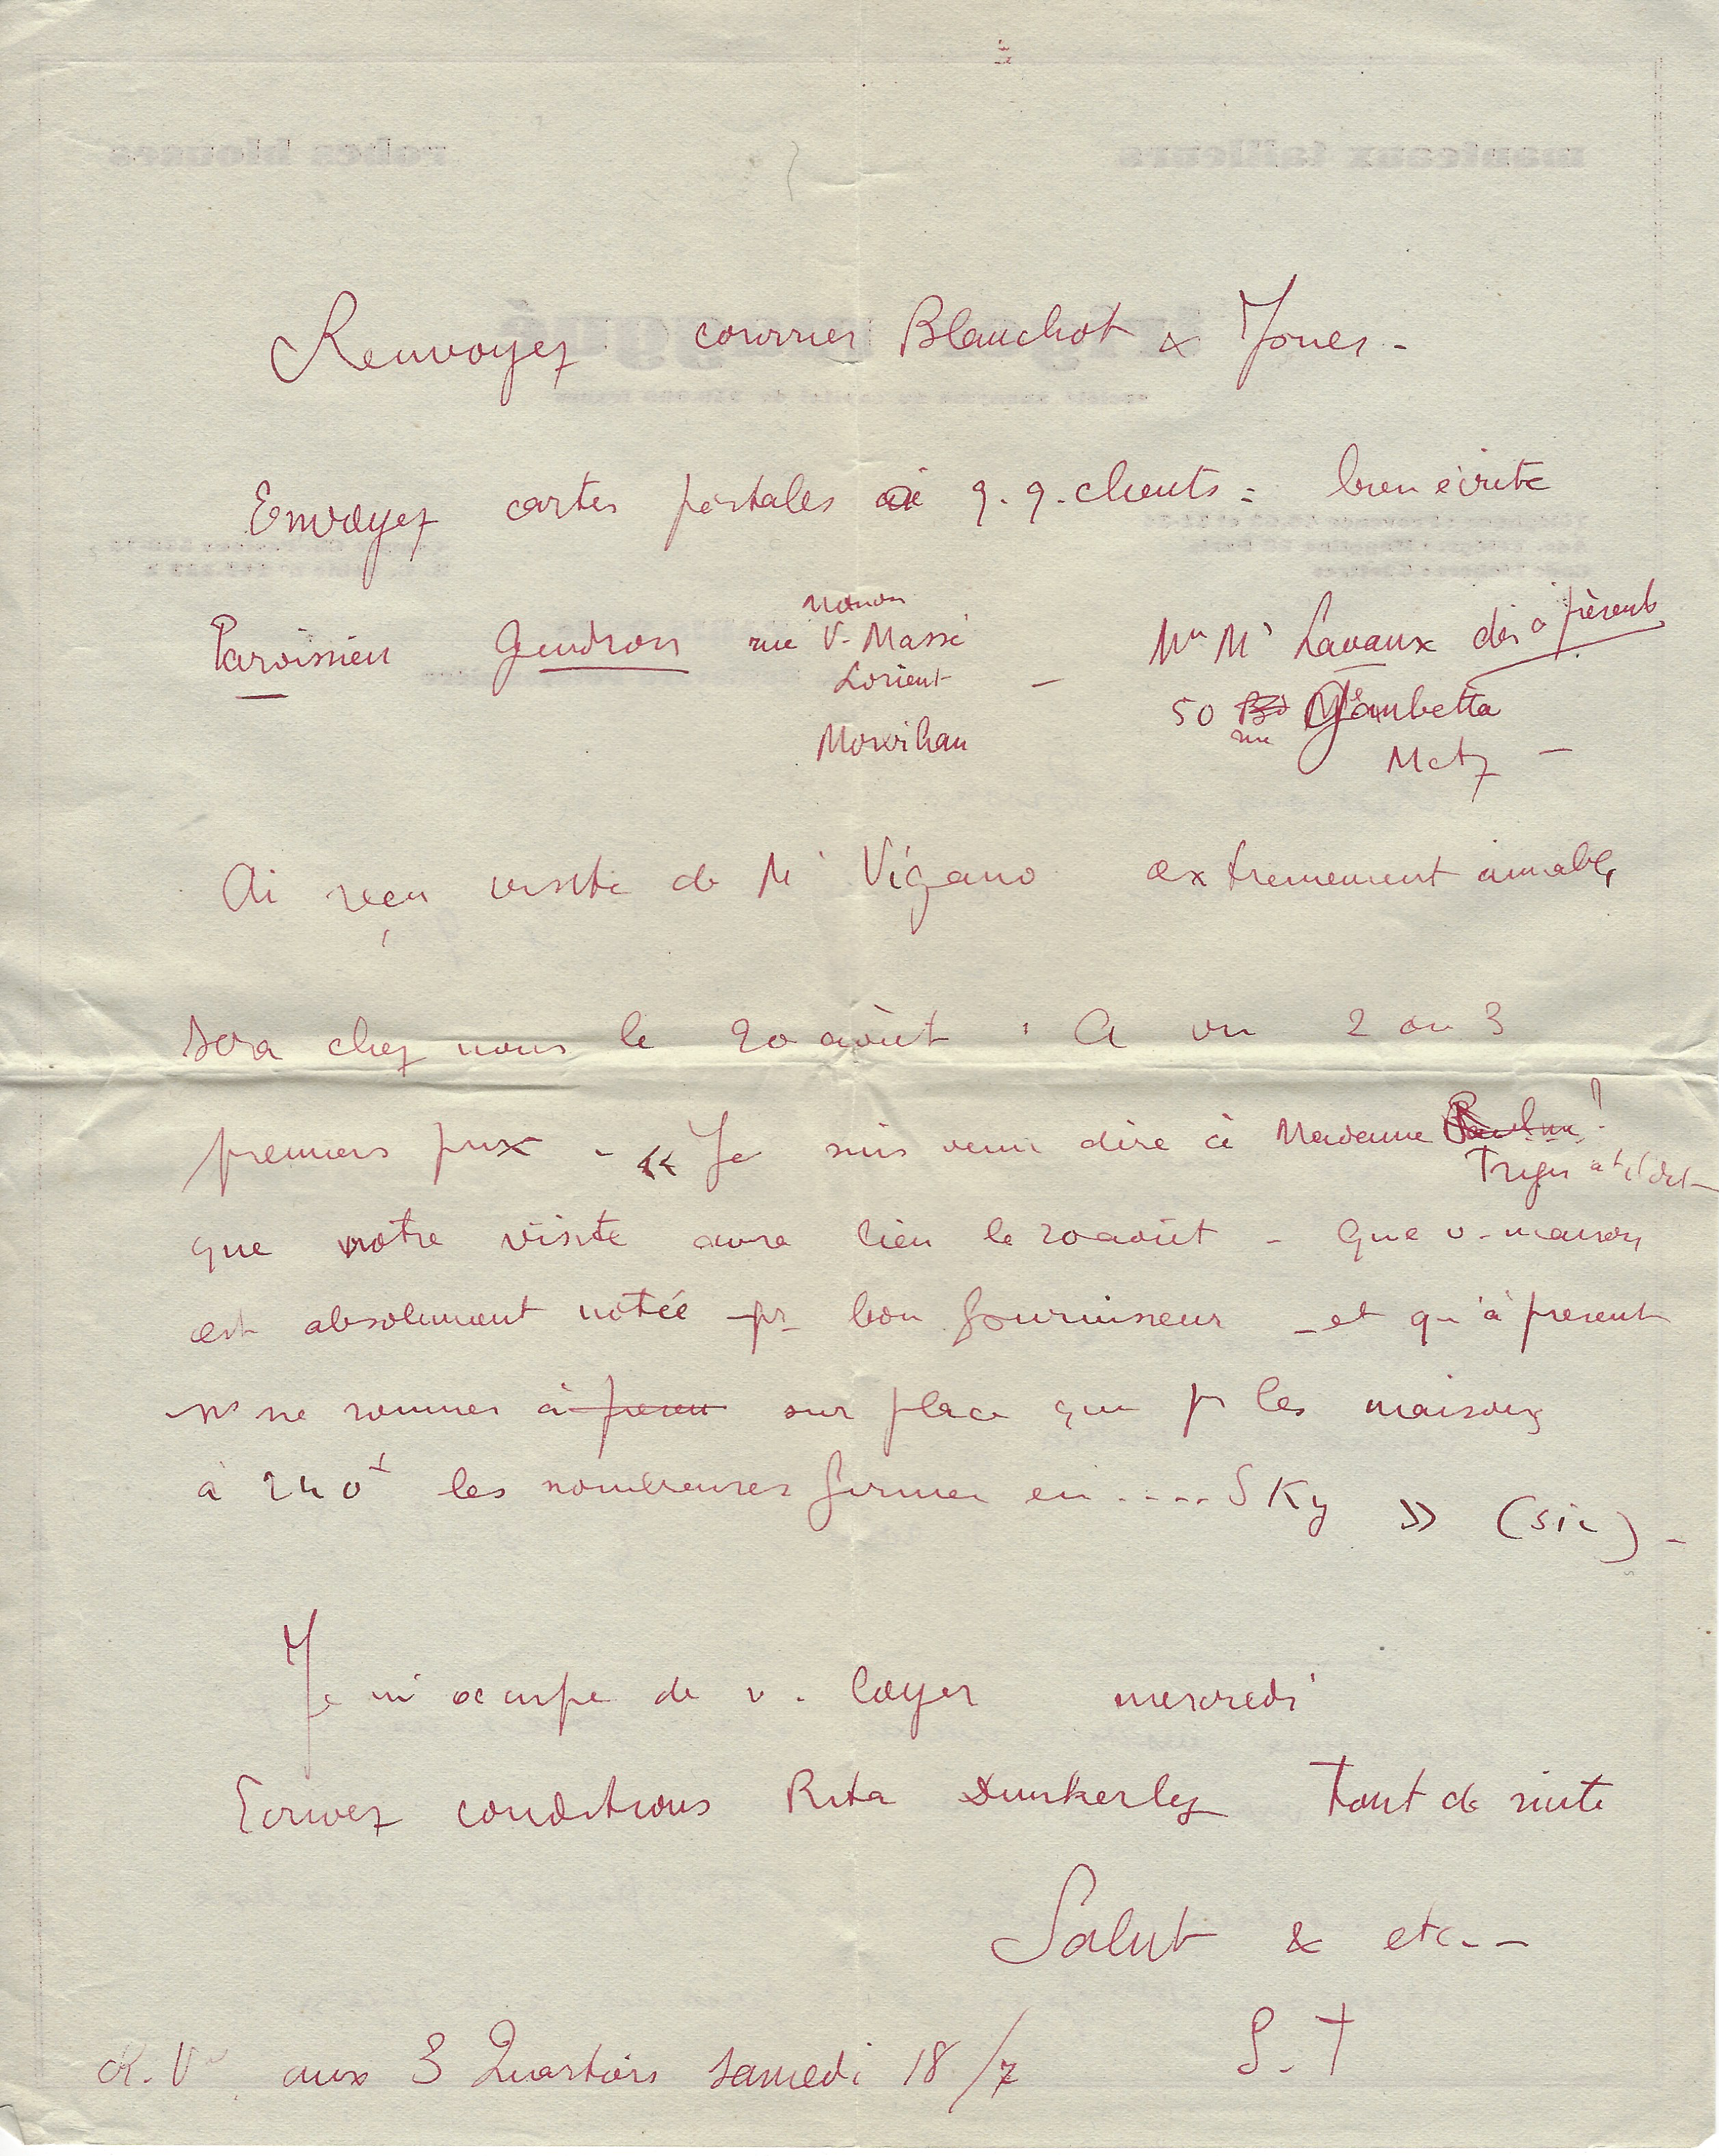 Renvoyez courrier Blanchot & Jones -
Envoyez cartes postales à q.q. clients = bien écrite
Paroissien Gendron rue V. Massé
Lorient -
Morbihan
Mr Lavaux dès à présent
50 rue Gambetta
Metz -
Ai reçu visite de Mr Vigano extremement aimable,
sera chez nous le 20 août. A vu 2 ou 3
premiers prix - « Je suis venu dire à Madame
que notre visite aura lieu le 20 août - Que v. maison
est absolument notée - pr - bon fournisseur - et qu'à present
ns ne sommes à sur place que pr les maisons
à 240 les nombreuses en .... SKy » (sic) -
Je m'occupe de v. loyer mercredi
Ecrivez conditions Rita Dunkerley tout de suite
Salut & etc - -
S. T
R.V. aux 3 Quartiers samedi 18/7
manteaux tailleurs
robes blouses
société anonyme au capital de francs